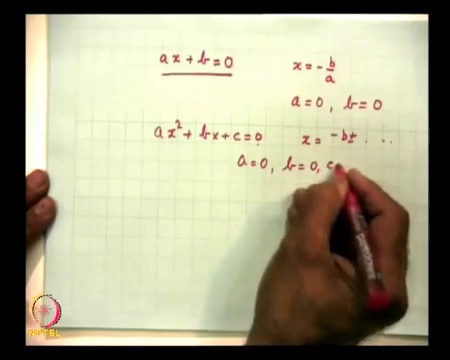 ax + b = 0    x = -b/a
a = 0, b = 0
ax² + bx + c = 0    x = -b± . . .
a = 0, b = 0, c
NPTEL